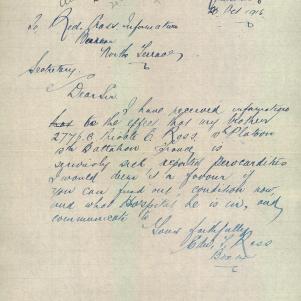 Oct 1916
To Red Cross Information
Bureau
North Terrace
Secretary.
Dear Sir
I have received information
to the effect that my brother
2775 C. Ross, Platoon
Battalion France is
seriously sick, reported pericarditis
I would deem it a favour if
you can find out condition now,
and what Hospital he is in, and
communicate to
Yours faithfully
Ross